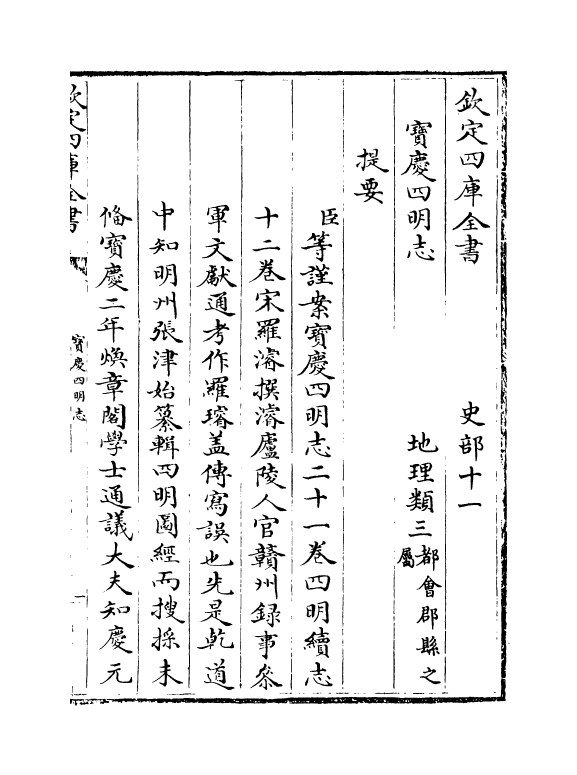 欽定四庫全書　史部十一
寶慶四明志　地理類三都會郡縣之屬
提要
臣等謹案寶慶四明志二十一卷四明續志
十二卷宋羅濬撰濬廬陵人官贛州錄事叅
軍文獻通考作羅璿蓋傳寫誤也先是乾道
中知明州張津始纂輯四明圖經而搜採未
偹寶慶二年煥章閣學士通議大夫知慶元
欽定四庫全書
寶慶四明志
一